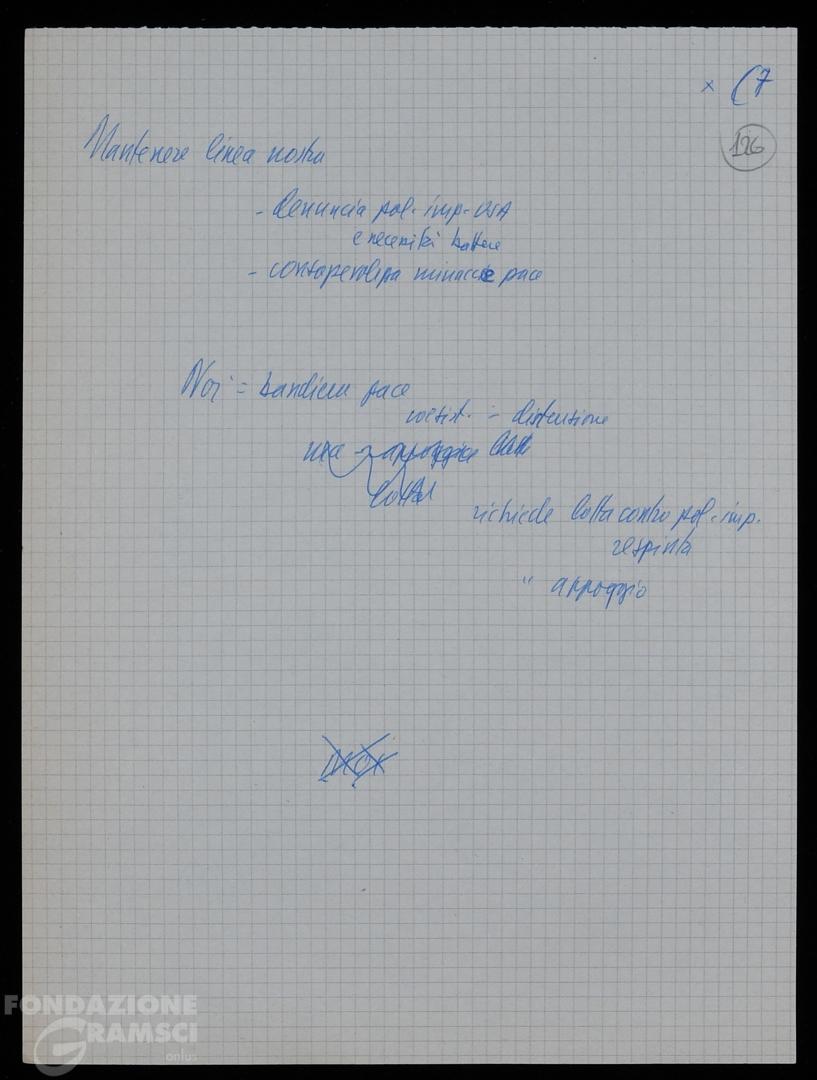 × (7
126
Mantenere linea nostra
- denuncia pol. imp. USA
e necessità battere
- consapevolezza minacce pace
Noi = bandiera pace
coesist. = distensione
ma appoggia
lotta
richiede lotta contro pol. imp.
respinta
" appoggio
FONDAZIONE
GRAMSCI
onlus